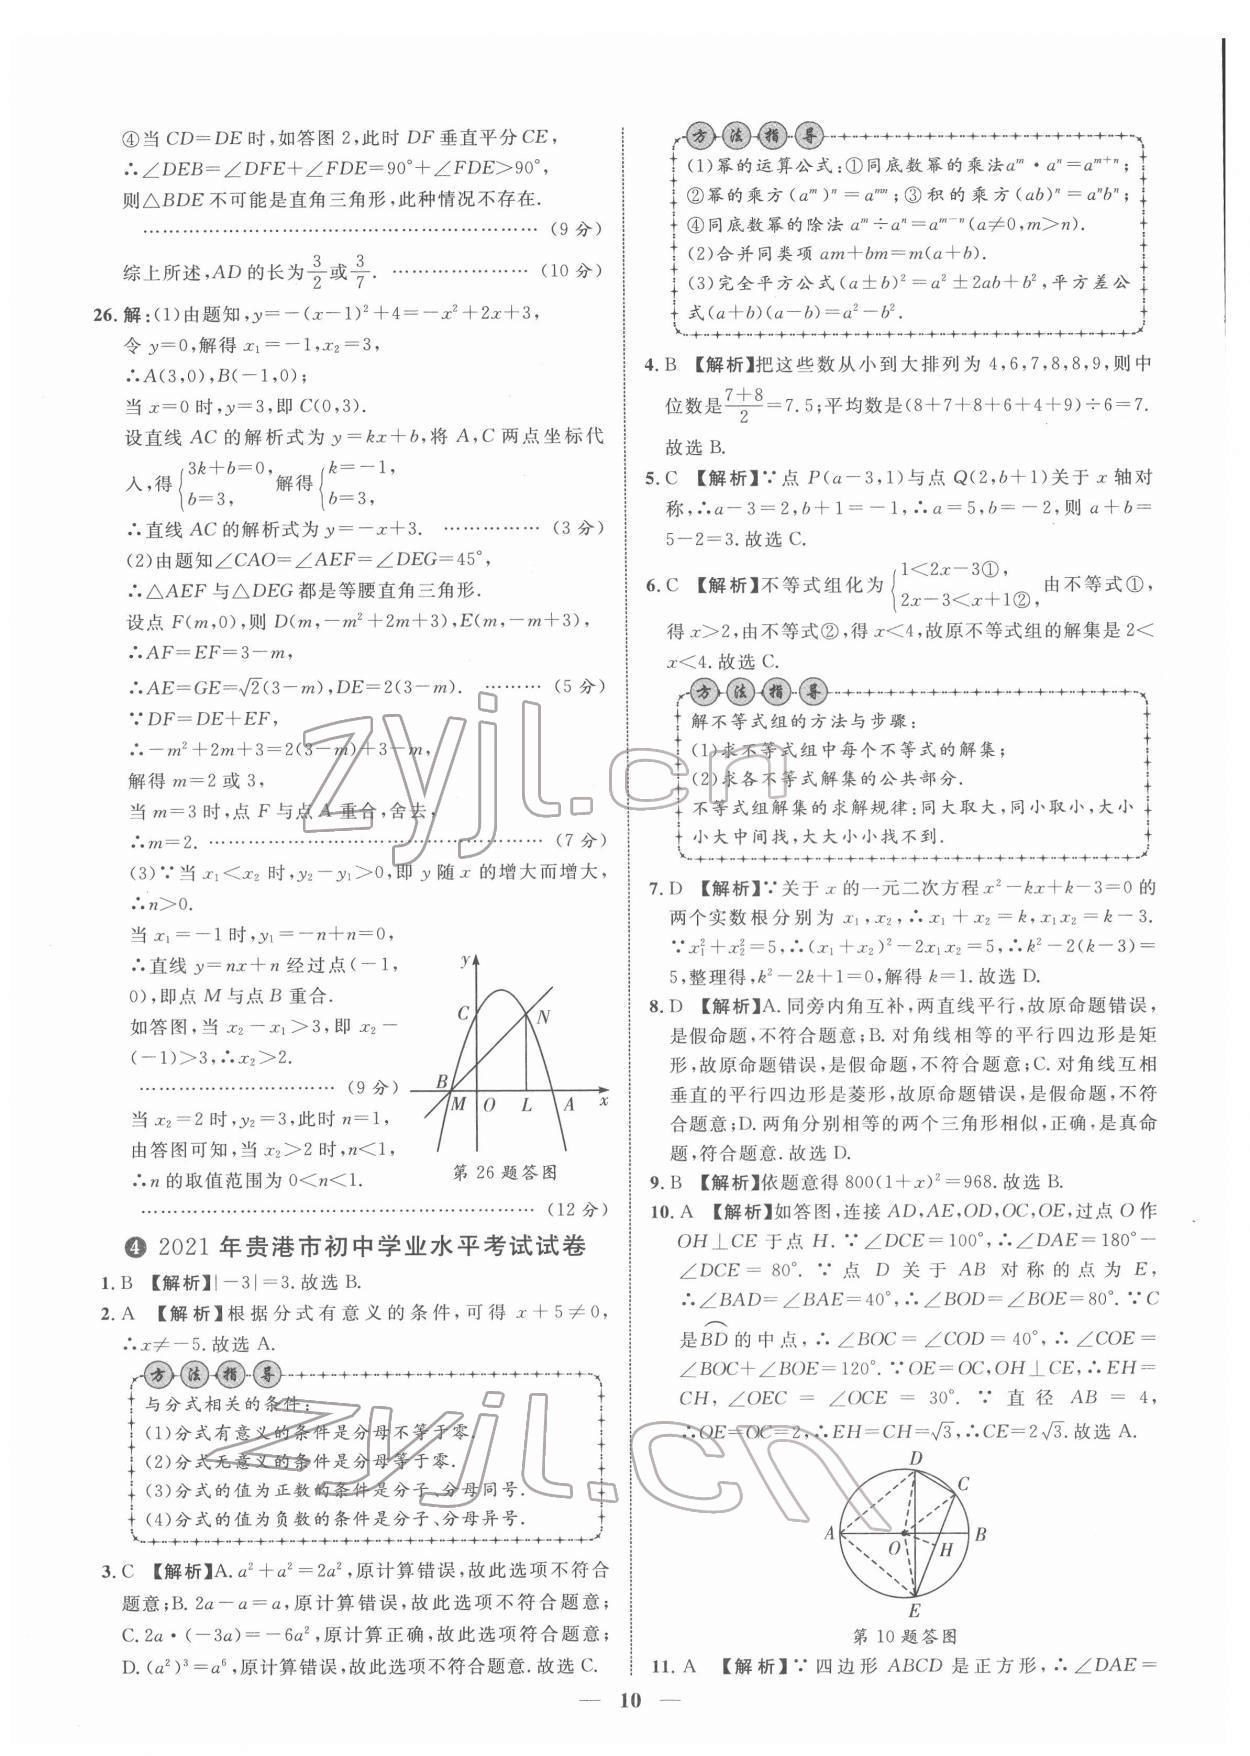 ④当 CD=DE 时,如答图 2,此时 DF 垂直平分 CE,
∴∠DEB=∠DFE+∠FDE=90°+∠FDE>90°,
则△BDE 不可能是直角三角形,此种情况不存在.
…………………………………………… (9 分)
综上所述,AD 的长为3/2或3/7. ………………… (10 分)
26. 解:(1)由题知,y=-(x-1)²+4=-x²+2x+3,
令 y=0,解得 x₁=-1,x₂=3,
∴A(3,0),B(-1,0);
当 x=0 时,y=3,即 C(0,3).
设直线 AC 的解析式为 y=kx+b,将 A,C 两点坐标代
入,得{3k+b=0, b=3, 解得{k=-1, b=3,
∴直线 AC 的解析式为 y=-x+3. …………… (3 分)
(2)由题知∠CAO=∠AEF=∠DEG=45°,
∴△AEF 与△DEG 都是等腰直角三角形.
设点 F(m,0),则 D(m,-m²+2m+3),E(m,-m+3),
∴AF=EF=3-m,
∴AE=GE=√2(3-m),DE=2(3-m). ……… (5 分)
∵DF=DE+EF,
∴-m²+2m+3=2(3-m)+3-m,
解得 m=2 或 3,
当 m=3 时,点 F 与点 A 重合,舍去,
∴m=2. …………………………………………… (7 分)
(3)∵当 x₁<x₂ 时,y₂-y₁>0,即 y 随 x 的增大而增大,
∴n>0.
当 x₁=-1 时,y₁=-n+n=0,
∴直线 y=nx+n 经过点(-1,
0),即点 M 与点 B 重合.
如答图,当 x₂-x₁>3,即 x₂-
(-1)>3,∴x₂>2.
………………………… (9 分)
当 x₂=2 时,y₂=3,此时 n=1,
由答图可知,当 x₂>2 时,n<1,
∴n 的取值范围为 0<n<1.
…………………………………………… (12 分)
y
C
N
B
M O L A x
第 26 题答图
❹ 2021 年贵港市初中学业水平考试试卷
1. B 【解析】|-3|=3.故选 B.
2. A 【解析】根据分式有意义的条件,可得 x+5≠0,
∴x≠-5.故选 A.
方法指导
与分式相关的条件:
(1)分式有意义的条件是分母不等于零.
(2)分式无意义的条件是分母等于零.
(3)分式的值为正数的条件是分子、分母同号.
(4)分式的值为负数的条件是分子、分母异号.
3. C 【解析】A. a²+a²=2a²,原计算错误,故此选项不符合
题意;B. 2a-a=a,原计算错误,故此选项不符合题意;
C. 2a·(-3a)=-6a²,原计算正确,故此选项符合题意;
D. (a²)³=a⁶,原计算错误,故此选项不符合题意.故选 C.
方法指导
(1)幂的运算公式:①同底数幂的乘法aᵐ·aⁿ=aᵐ⁺ⁿ;
②幂的乘方(aᵐ)ⁿ=aᵐⁿ;③积的乘方(ab)ⁿ=aⁿbⁿ;
④同底数幂的除法 aᵐ÷aⁿ=aᵐ⁻ⁿ(a≠0,m>n).
(2)合并同类项 am+bm=m(a+b).
(3)完全平方公式(a±b)²=a²±2ab+b²,平方差公
式(a+b)(a-b)=a²-b².
4. B 【解析】把这些数从小到大排列为 4,6,7,8,8,9,则中
位数是(7+8)/2=7.5;平均数是(8+7+8+6+4+9)÷6=7.
故选 B.
5. C 【解析】∵点 P(a-3,1)与点 Q(2,b+1)关于 x 轴对
称,∴a-3=2,b+1=-1,∴a=5,b=-2,则 a+b=
5-2=3.故选 C.
6. C 【解析】不等式组化为{1<2x-3①, 2x-3<x+1②, 由不等式①,
得 x>2,由不等式②,得 x<4,故原不等式组的解集是 2<
x<4.故选 C.
方法指导
解不等式组的方法与步骤:
(1)求不等式组中每个不等式的解集;
(2)求各不等式解集的公共部分.
不等式组解集的求解规律:同大取大,同小取小,大小
小大中间找,大大小小找不到.
7. D 【解析】∵关于 x 的一元二次方程 x²-kx+k-3=0 的
两个实数根分别为 x₁,x₂,∴x₁+x₂=k,x₁x₂=k-3.
∵x₁²+x₂²=5,∴(x₁+x₂)²-2x₁x₂=5,∴k²-2(k-3)=
5,整理得,k²-2k+1=0,解得 k=1.故选 D.
8. D 【解析】A. 同旁内角互补,两直线平行,故原命题错误,
是假命题,不符合题意;B. 对角线相等的平行四边形是矩
形,故原命题错误,是假命题,不符合题意;C. 对角线互相
垂直的平行四边形是菱形,故原命题错误,是假命题,不符
合题意;D. 两角分别相等的两个三角形相似,正确,是真命
题,符合题意.故选 D.
9. B 【解析】依题意得 800(1+x)²=968.故选 B.
10. A 【解析】如答图,连接 AD,AE,OD,OC,OE,过点 O 作
OH⊥CE 于点 H.∵∠DCE=100°,∴∠DAE=180°-
∠DCE=80°.∵点 D 关于 AB 对称的点为 E,
∴∠BAD=∠BAE=40°,∴∠BOD=∠BOE=80°.∵C
是B͡D的中点,∴∠BOC=∠COD=40°,∴∠COE=
∠BOC+∠BOE=120°.∵OE=OC,OH⊥CE,∴EH=
CH,∠OEC=∠OCE=30°.∵直径 AB=4,
∴OE=OC=2,∴EH=CH=√3,∴CE=2√3.故选 A.
D
C
A
O
B
H
E
第 10 题答图
11. A 【解析】∵四边形 ABCD 是正方形,∴∠DAE=
— 10 —
zyjl.cn
zyjl.cn